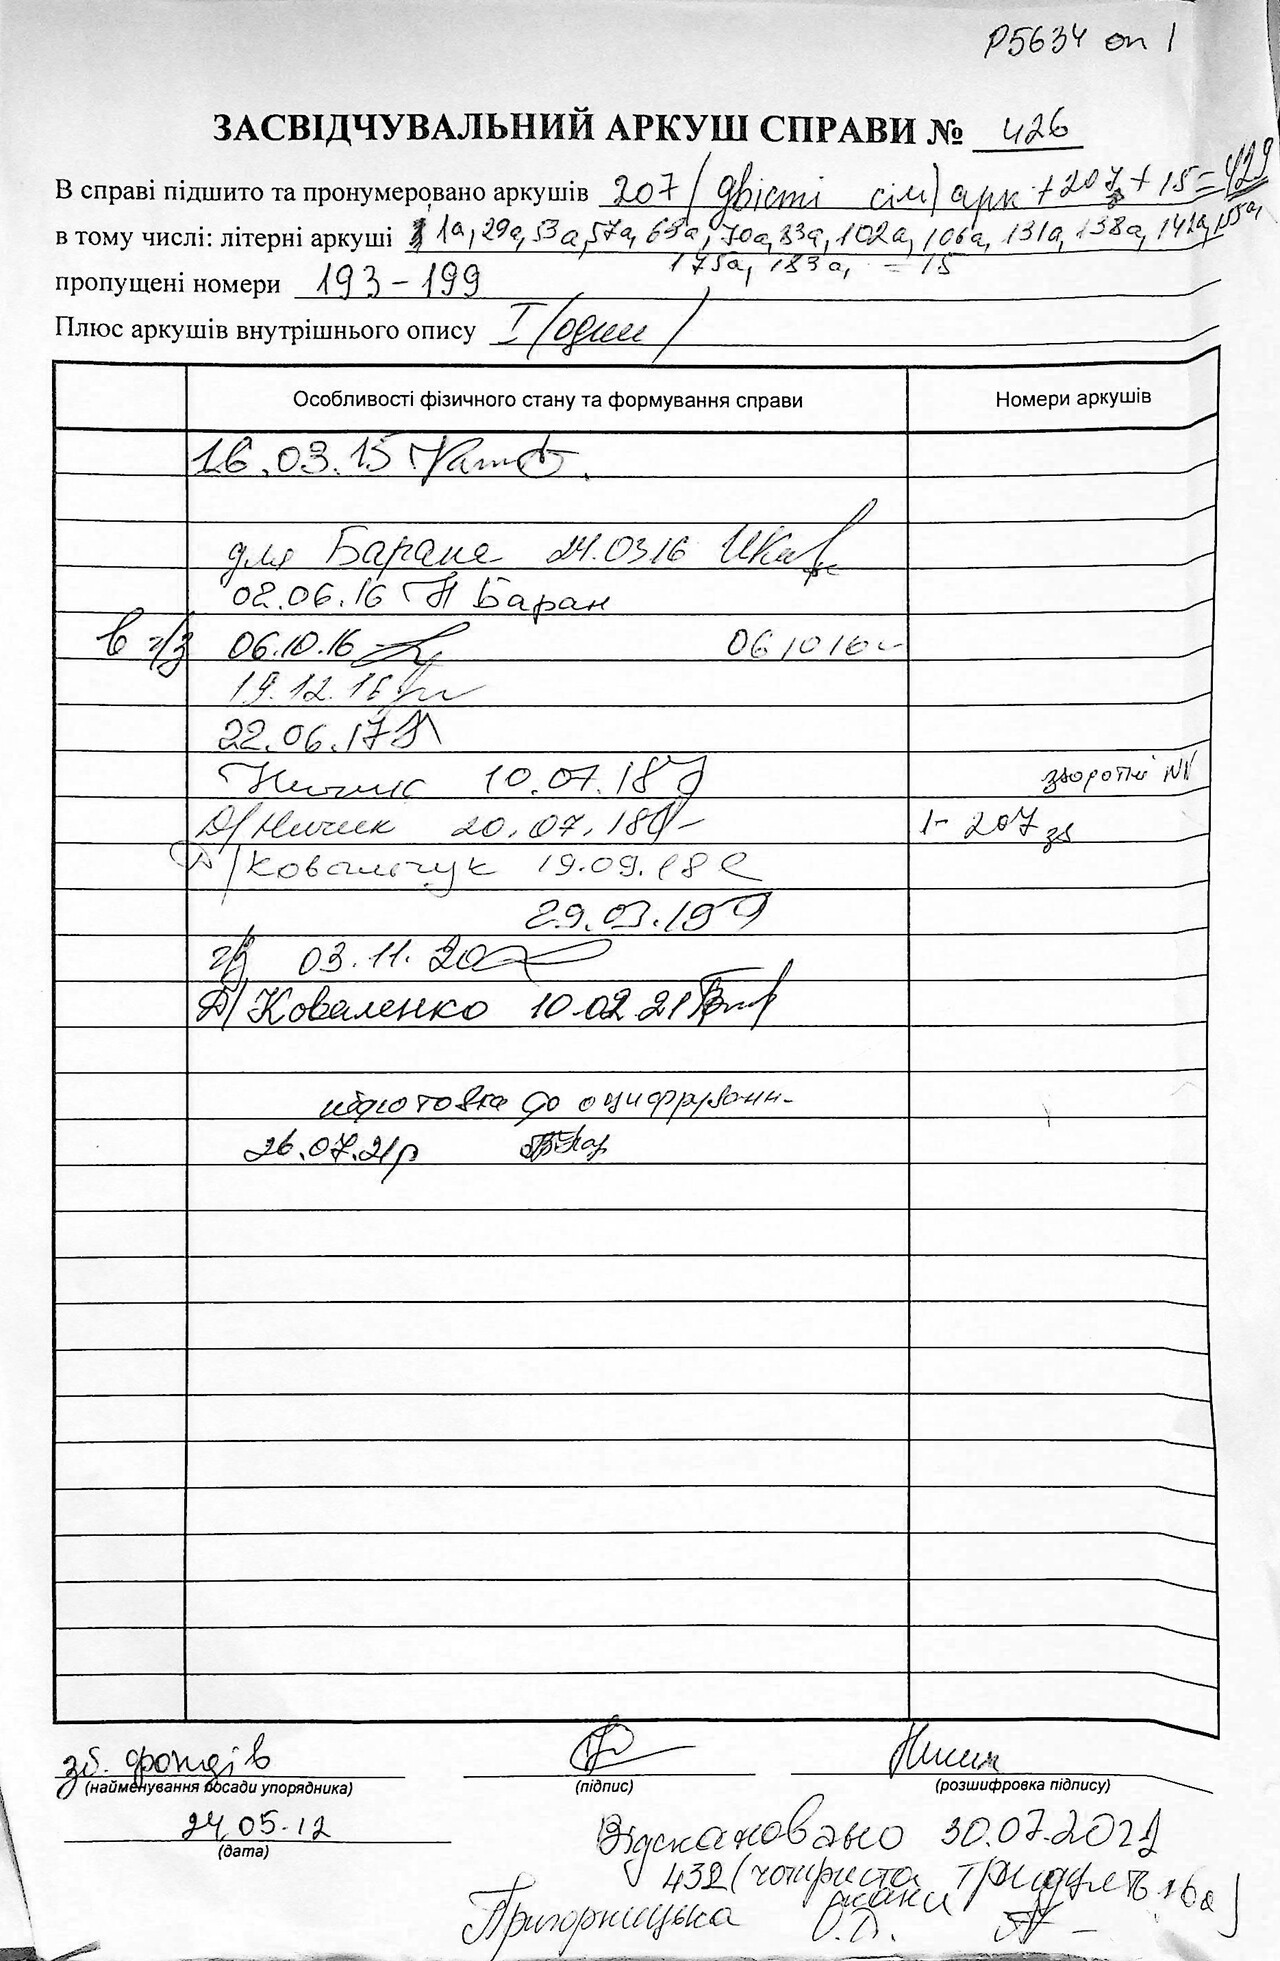 Р5634 оп 1
ЗАСВІДЧУВАЛЬНИЙ АРКУШ СПРАВИ № 426
В справі підшито та пронумеровано аркушів 207 (двісті сім) арк + 207 + 15 = 429
в тому числі: літерні аркуші 1а, 29а, 53а, 57а, 63а, 70а, 83а, 102а, 106а, 131а, 138а, 142а, 155а,
175а, 183а, = 15
пропущені номери 193-199
Плюс аркушів внутрішнього опису I (один)
Особливості фізичного стану та формування справи Номери аркушів
16.03.15
для Барана 24.03.16
02.06.16 Баран
в ч/з 06.10.16 06 10 16
19.12.16
22.06.17
10.07.18 зворотні NN
Д/ 20.07.18 1-207 зв
Д/Ковальчук 19.09.18
29.03.19
ч/з 03.11.20
Д/Коваленко 10.02.21
підготовка до оцифрування
26.07.21р
зб. фондів
(найменування посади упорядника) (підпис) (розшифровка підпису)
24.05.12
(дата)
Відскановано 30.07.2021
432 (чотириста тридцять два)
скани
Пригорницька О.Д.